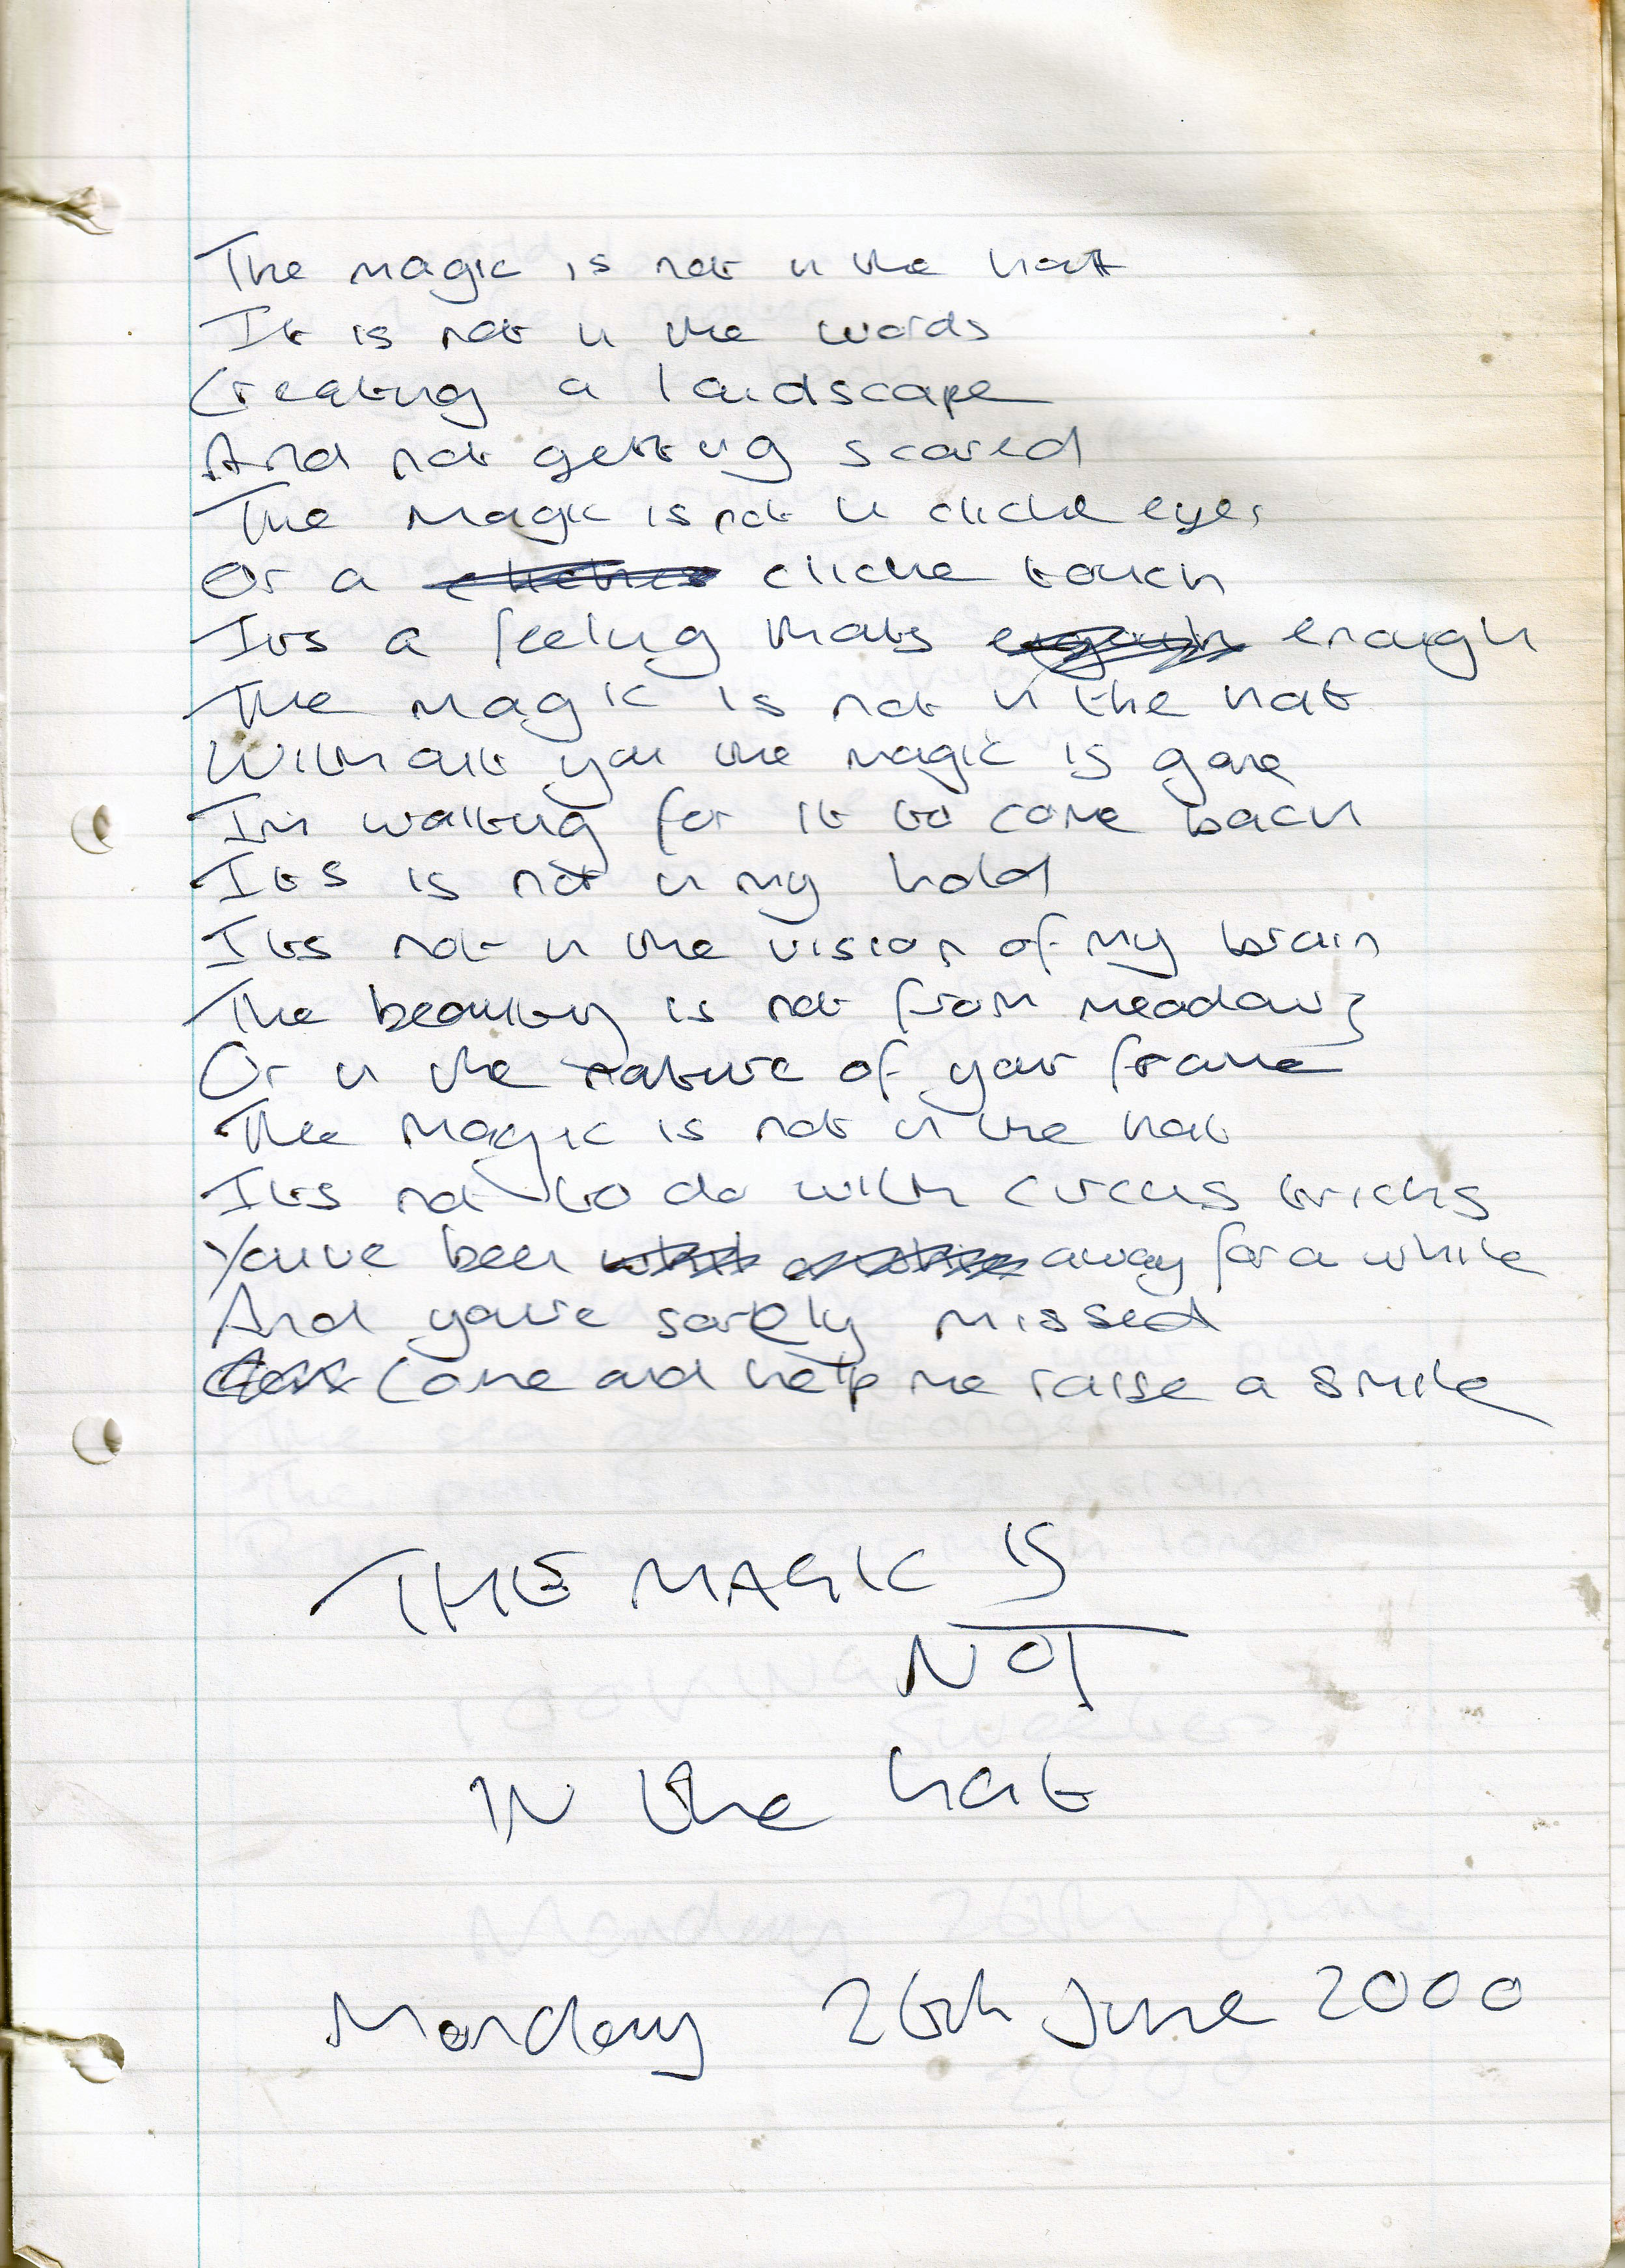 The magic is not in the hat
It is not in the words
Creating a landscape
And not getting scared
The magic is not in cliche eyes
Or a cliche touch
Its a feeling thats enough
The magic is not in the hat
Without you the magic is gone
Im waiting for it to come back
Its is not in my hold
Its not in the vision of my brain
The beauty is not from meadows
Or in the nature of your frame
The magic is not in the hat
Its not to do with circus tricks
Youve been away for a while
And youre sorely missed
Come and help me raise a smile
THE MAGIC IS
NOT
IN the hat
Monday 26th June 2000